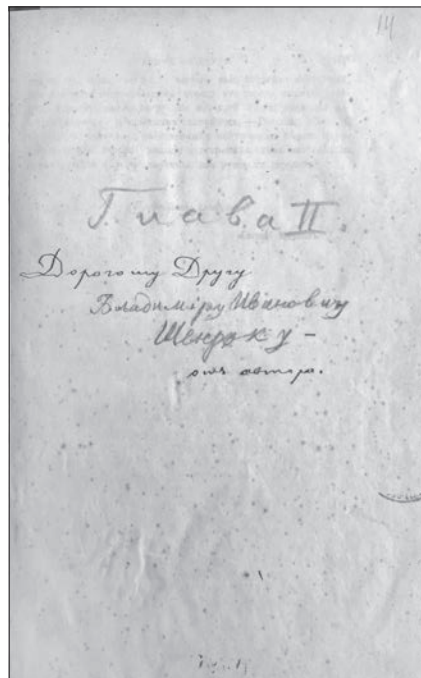 14
Глава II.
Дорогому Другу
Владиміру Ивановичу
Шенроку –
отъ автора.